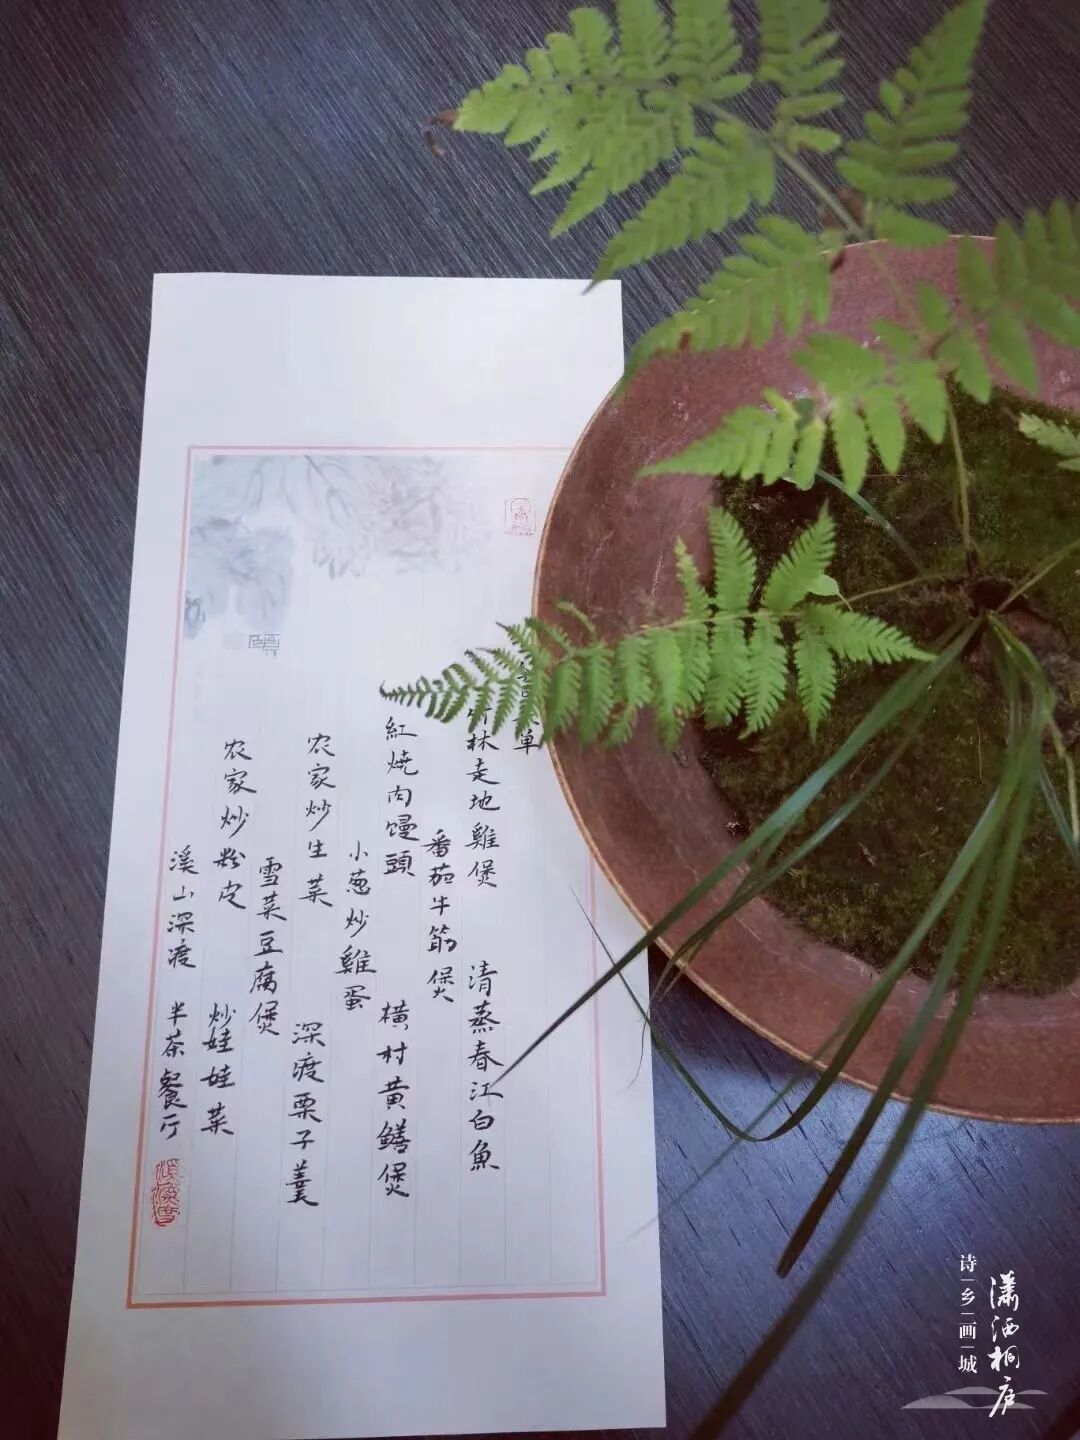 单
林走地雞煲
清蒸春江白魚
番茄牛筋煲
紅燒肉馒頭
横村黄鳝煲
小葱炒雞蛋
农家炒生菜
深渡栗子羹
雪菜豆腐煲
农家炒粉皮
炒娃娃菜
溪山深渡 半茶餐厅
诗乡画城
潇洒桐庐